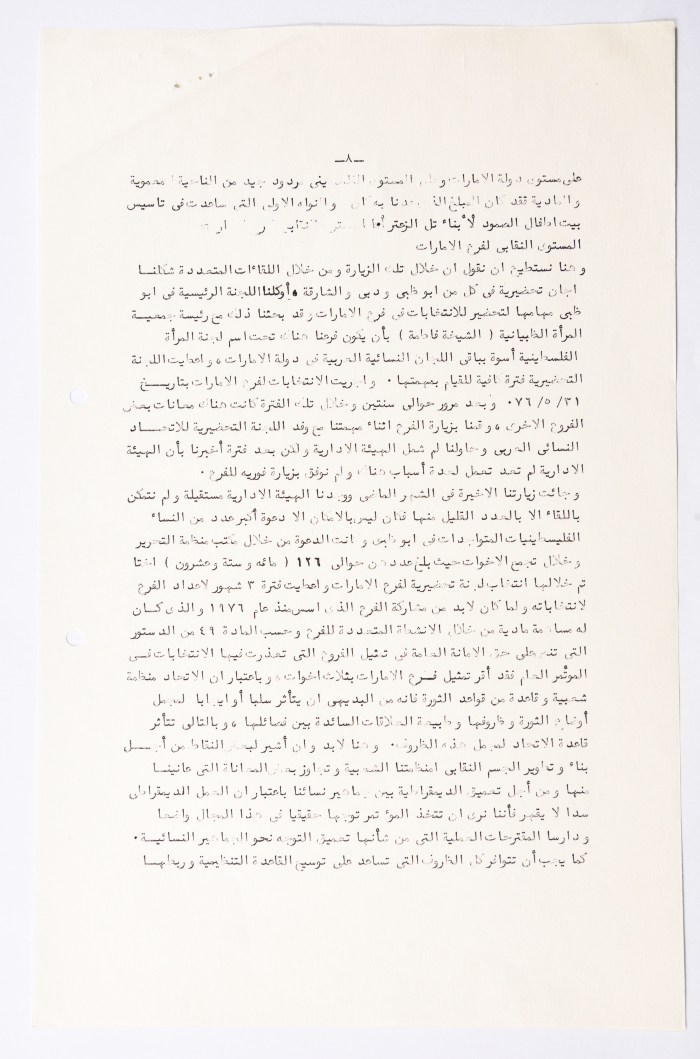 ـ٨ـ
على مستوى دولة الامارات و المستوى يني مردود جيد من الناحية المعنوية
والمادية فقد كان المبلغ والنواه الاولى التي ساعدت في تاسيس
بيت اطفال الصمود لأبناء تل الزعتر
المستوى النقابي لفرع الامارات
وهنا نستطيع ان نقول ان خلال تلك الزيارة ومن خلال اللقاءات المتعددة شكلنا
لجان تحضيرية في كل من ابو ظبي ودبي والشارقة ، أوكلنا اللجنة الرئيسية في ابو
ظبي مهامها لتحضير للانتخابات في فرع الامارات وقد بحثنا ذلك مع رئيسة جمعية
المرأة الظبيانية ( الشيخة فاطمة ) بأن يكون فرعنا هناك تحت اسم لجنة المرأة
الفلسطينية أسوة بباقي اللجان النسائية العربية في دولة الامارات ، واعطيت اللجنة
التحضيرية فترة كافية للقيام بمهمتها . واجريت الانتخابات لفرع الامارات بتاريخ
٣١ /٥ /٧٦ . وبعد مرور حوالي سنتين وخلال تلك الفترة كانت هناك معانات بعض
الفروع الاخرى ، وقمنا بزيارة الفرع اثناء مهمتنا مع وفد اللجنة التحضيرية للاتحاد
النسائي العربي وحاولنا لم شمل الهيئة الادارية ولكن بعد فترة أخبرنا بأن الهيئة
الادارية لم تعد تعمل لعدة أسباب هناك ولم نوفق بزيارة فوريه للفرع .
وجائت زيارتنا الاخيرة في الشهر الماضي ووجدنا الهيئة الادارية مستقيلة ولم نتمكن
باللقاء الا بالعدد القليل منها فكان ليس بالامكان الا دعوة أكبر عدد من النساء
الفليسطينيات المتواجدات في ابو ظبي وكانت الدعوة من خلال مكتب منظمة التحرير
وخلال تجمع الاخوات حيث بلغ عددهن حوالي ١٢٦ ( مائه وستة وعشرون ) اختا
تم خلالها انتخاب لجنة تحضيرية لفرع الامارات واعطيت فترة ٣ شهور لاعداد الفرع
لانتخاباته ولما كان لابد من مشاركة الفرع الذى اسس منذ عام ١٩٧٦ والذى كان
له مساهمة مادية من خلال الانشطة المتعددة للفرع وحسب المادة ٤٩ من الدستور
التي تنص على حق الامانة العامة في تمثيل الفروع التي تعذرت فيها الانتخابات في
المؤتمر العام فقد أقر تمثيل فرع الامارات بثلاث اخوات ، وباعتبار ان الاتحاد منظمة
شعبية وقاعدة من قواعد الثورة فانه من البديهي ان يتأثر سلبا أو ايجابا لمجمل
أوضاع الثورة وظروفها وطبيعة العلاقات السائدة بين فصائلها ، وبالتالي تتأثر
قاعدة الاتحاد لمجمل هذه الظروف . وهنا لابد وان أشير لبعض النقاط من أجل
بناء وتطوير الجسم النقابي لمنظمتنا الشعبية وتجاوز بعض المعاناة التي عانينا
منها ومن أجل تعميق الديمقراطية بين جماهير نسائنا باعتبار ان العمل الديمقراطي
سدا لا يقهر فأننا نرى ان تتخذ المؤتمر توجها حقيقيا في هذا المجال واضعا
ودارسا المقترحات العملية التي من شأنها تعميق التوجه نحو الجماهير النسائية .
كما يجب أن تتوافر كل الظروف التي تساعد على توسيع القاعدة التنظيمية وربطها